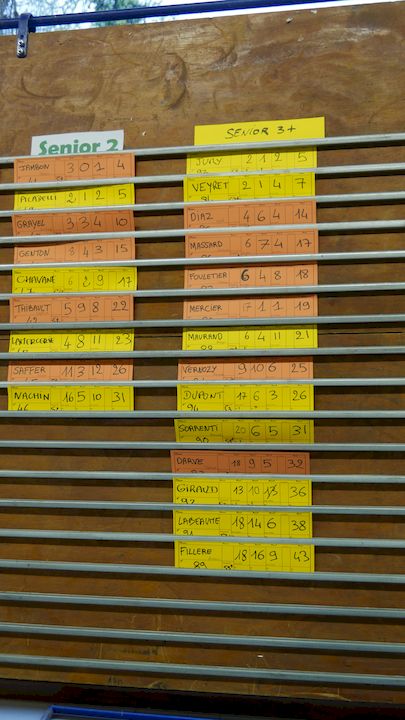 Senior 2
JAMBON 3 0 1 4
PICABELLI 2 1 2 5
GRAVEL 3 3 4 10
GENTON 8 4 3 15
CHAVANE 6 2 9 17
THIBAULT 5 9 8 22
4 8 11 23
SAFFER 11 3 12 26
NACHIN 16 5 10 31
SENIOR 3+
JUVLY 2 1 2 5
VEYRET 2 1 4 7
DIAZ 4 6 4 14
MASSARD 6 7 4 17
POULETIER 6 4 8 18
MERCIER 17 1 1 19
MAURAND 6 4 11 21
VERNOZY 9 10 6 25
DUPONT 17 6 3 26
SORRENTI 20 6 5 31
90
DARVE 18 9 5 32
GIRAUD 13 10 13 36
92
LABEAUTE 18 14 6 38
91
FILLERE 18 16 9 43
89